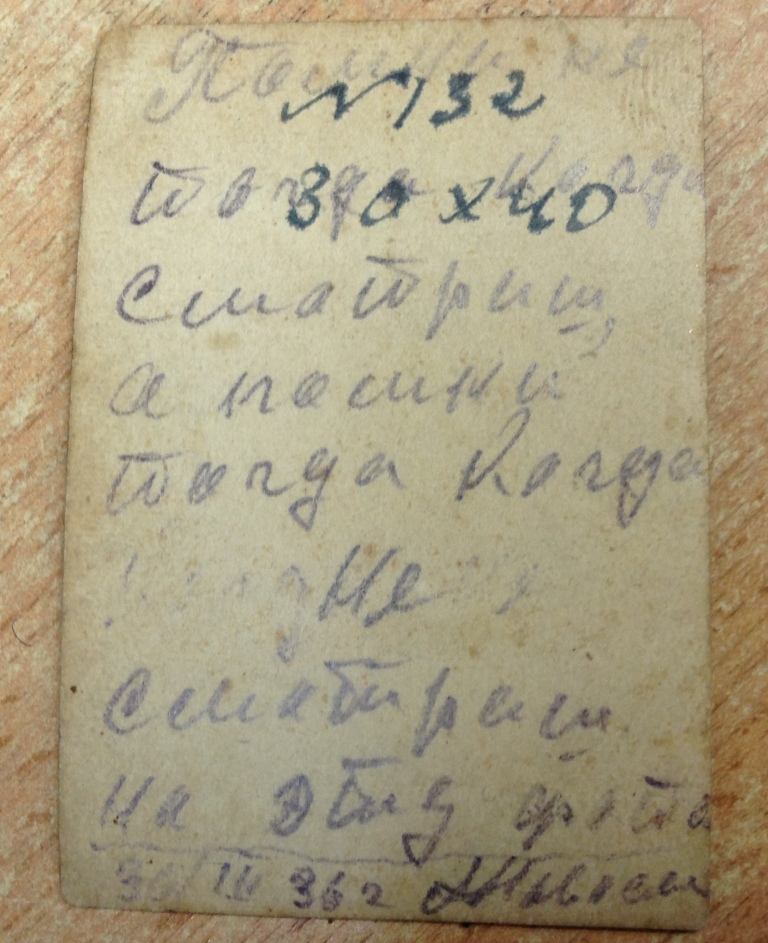 Помни не
№132
тогда когда
30х40
сматриш,
а помни
тогда когда
Не
сматриш
на этид фото
30/III 36г